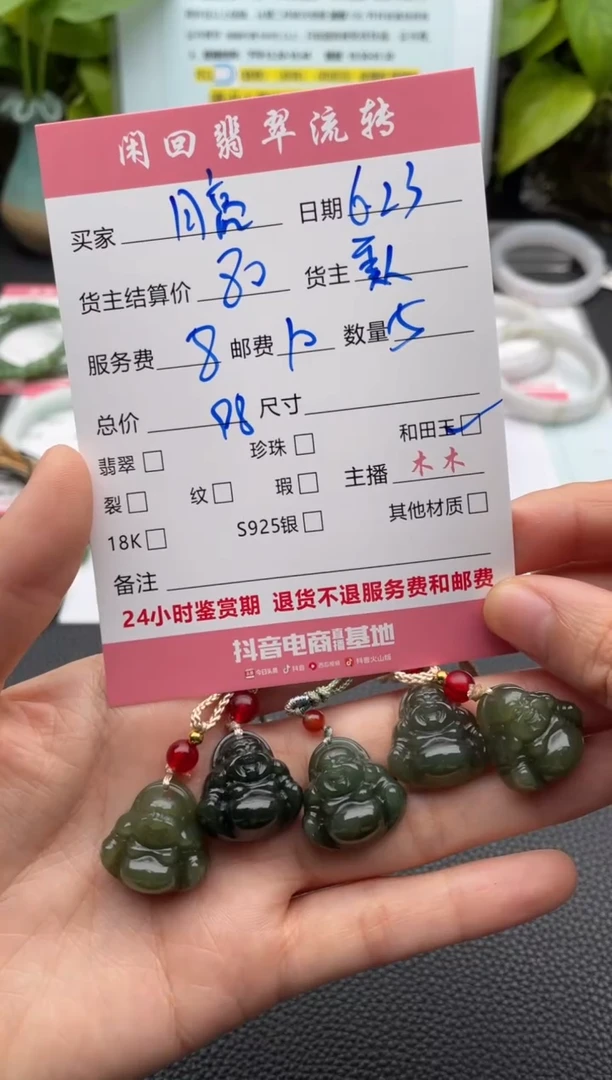 闲回翡翠流转
买家 月亮 日期 6.23
货主结算价 80 货主
服务费 8 邮费 10 数量 5
总价 98 尺寸
翡翠 珍珠 和田玉
裂 纹 瑕 主播 木木
18K S925银 其他材质
备注
24小时鉴赏期 退货不退服务费和邮费
抖音电商直播基地
今日头条 抖音 西瓜视频 抖音火山版